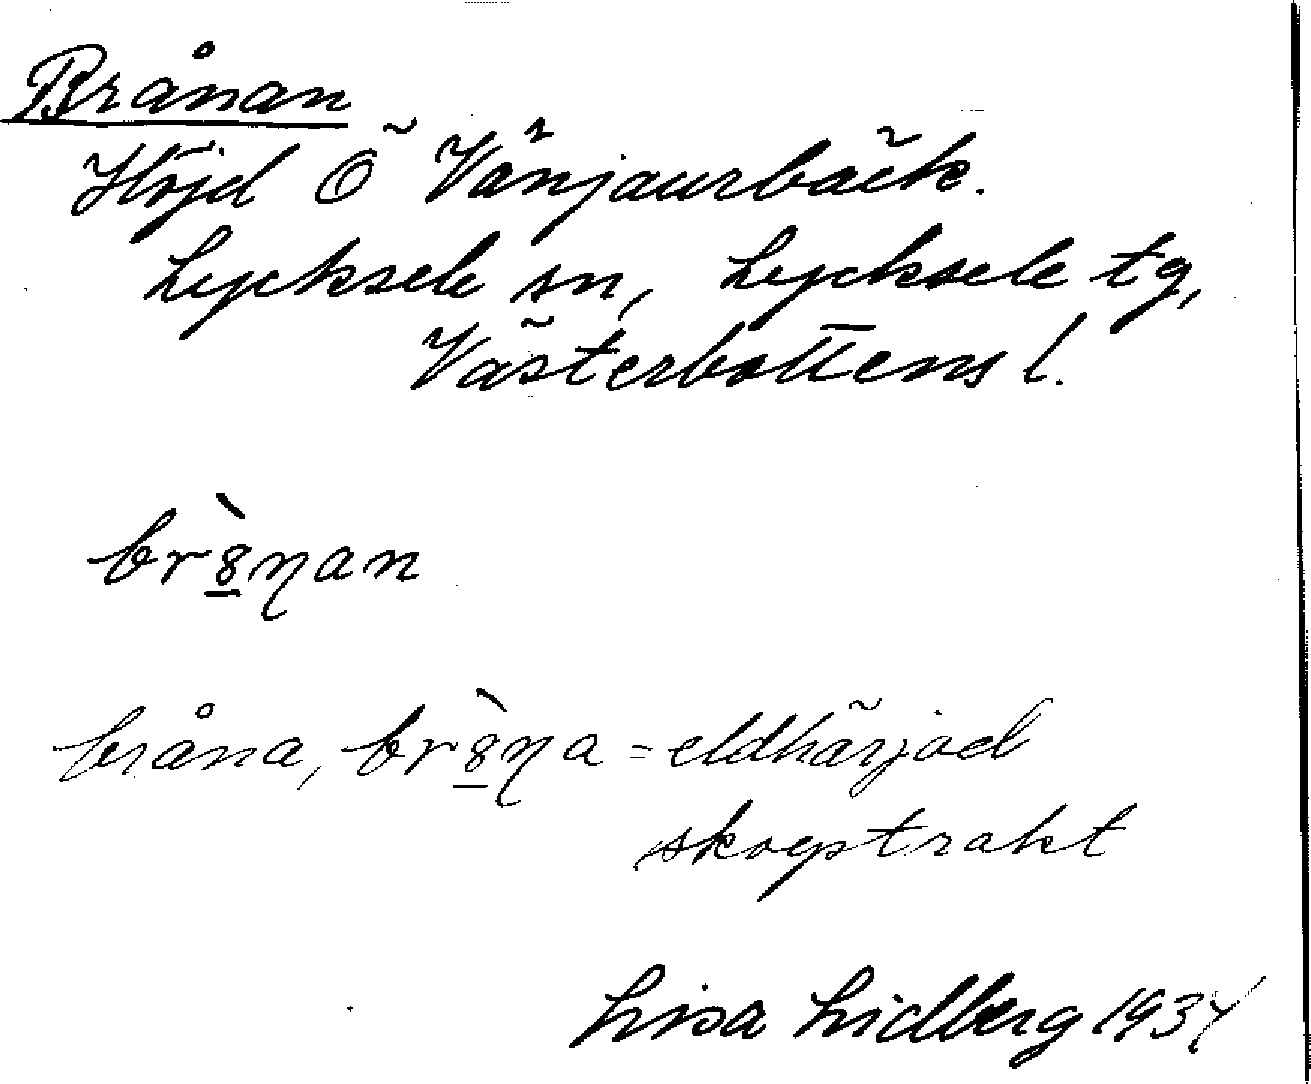 Brånan
Höjd Ö Vänjaurbäck.
Lycksele sn, Lycksele tg,
Västerbottens l.
br8̲̀ŋan
bråna, br8̲̀ŋa = eldhärjad
skogstrakt
Lisa Lidberg 1934